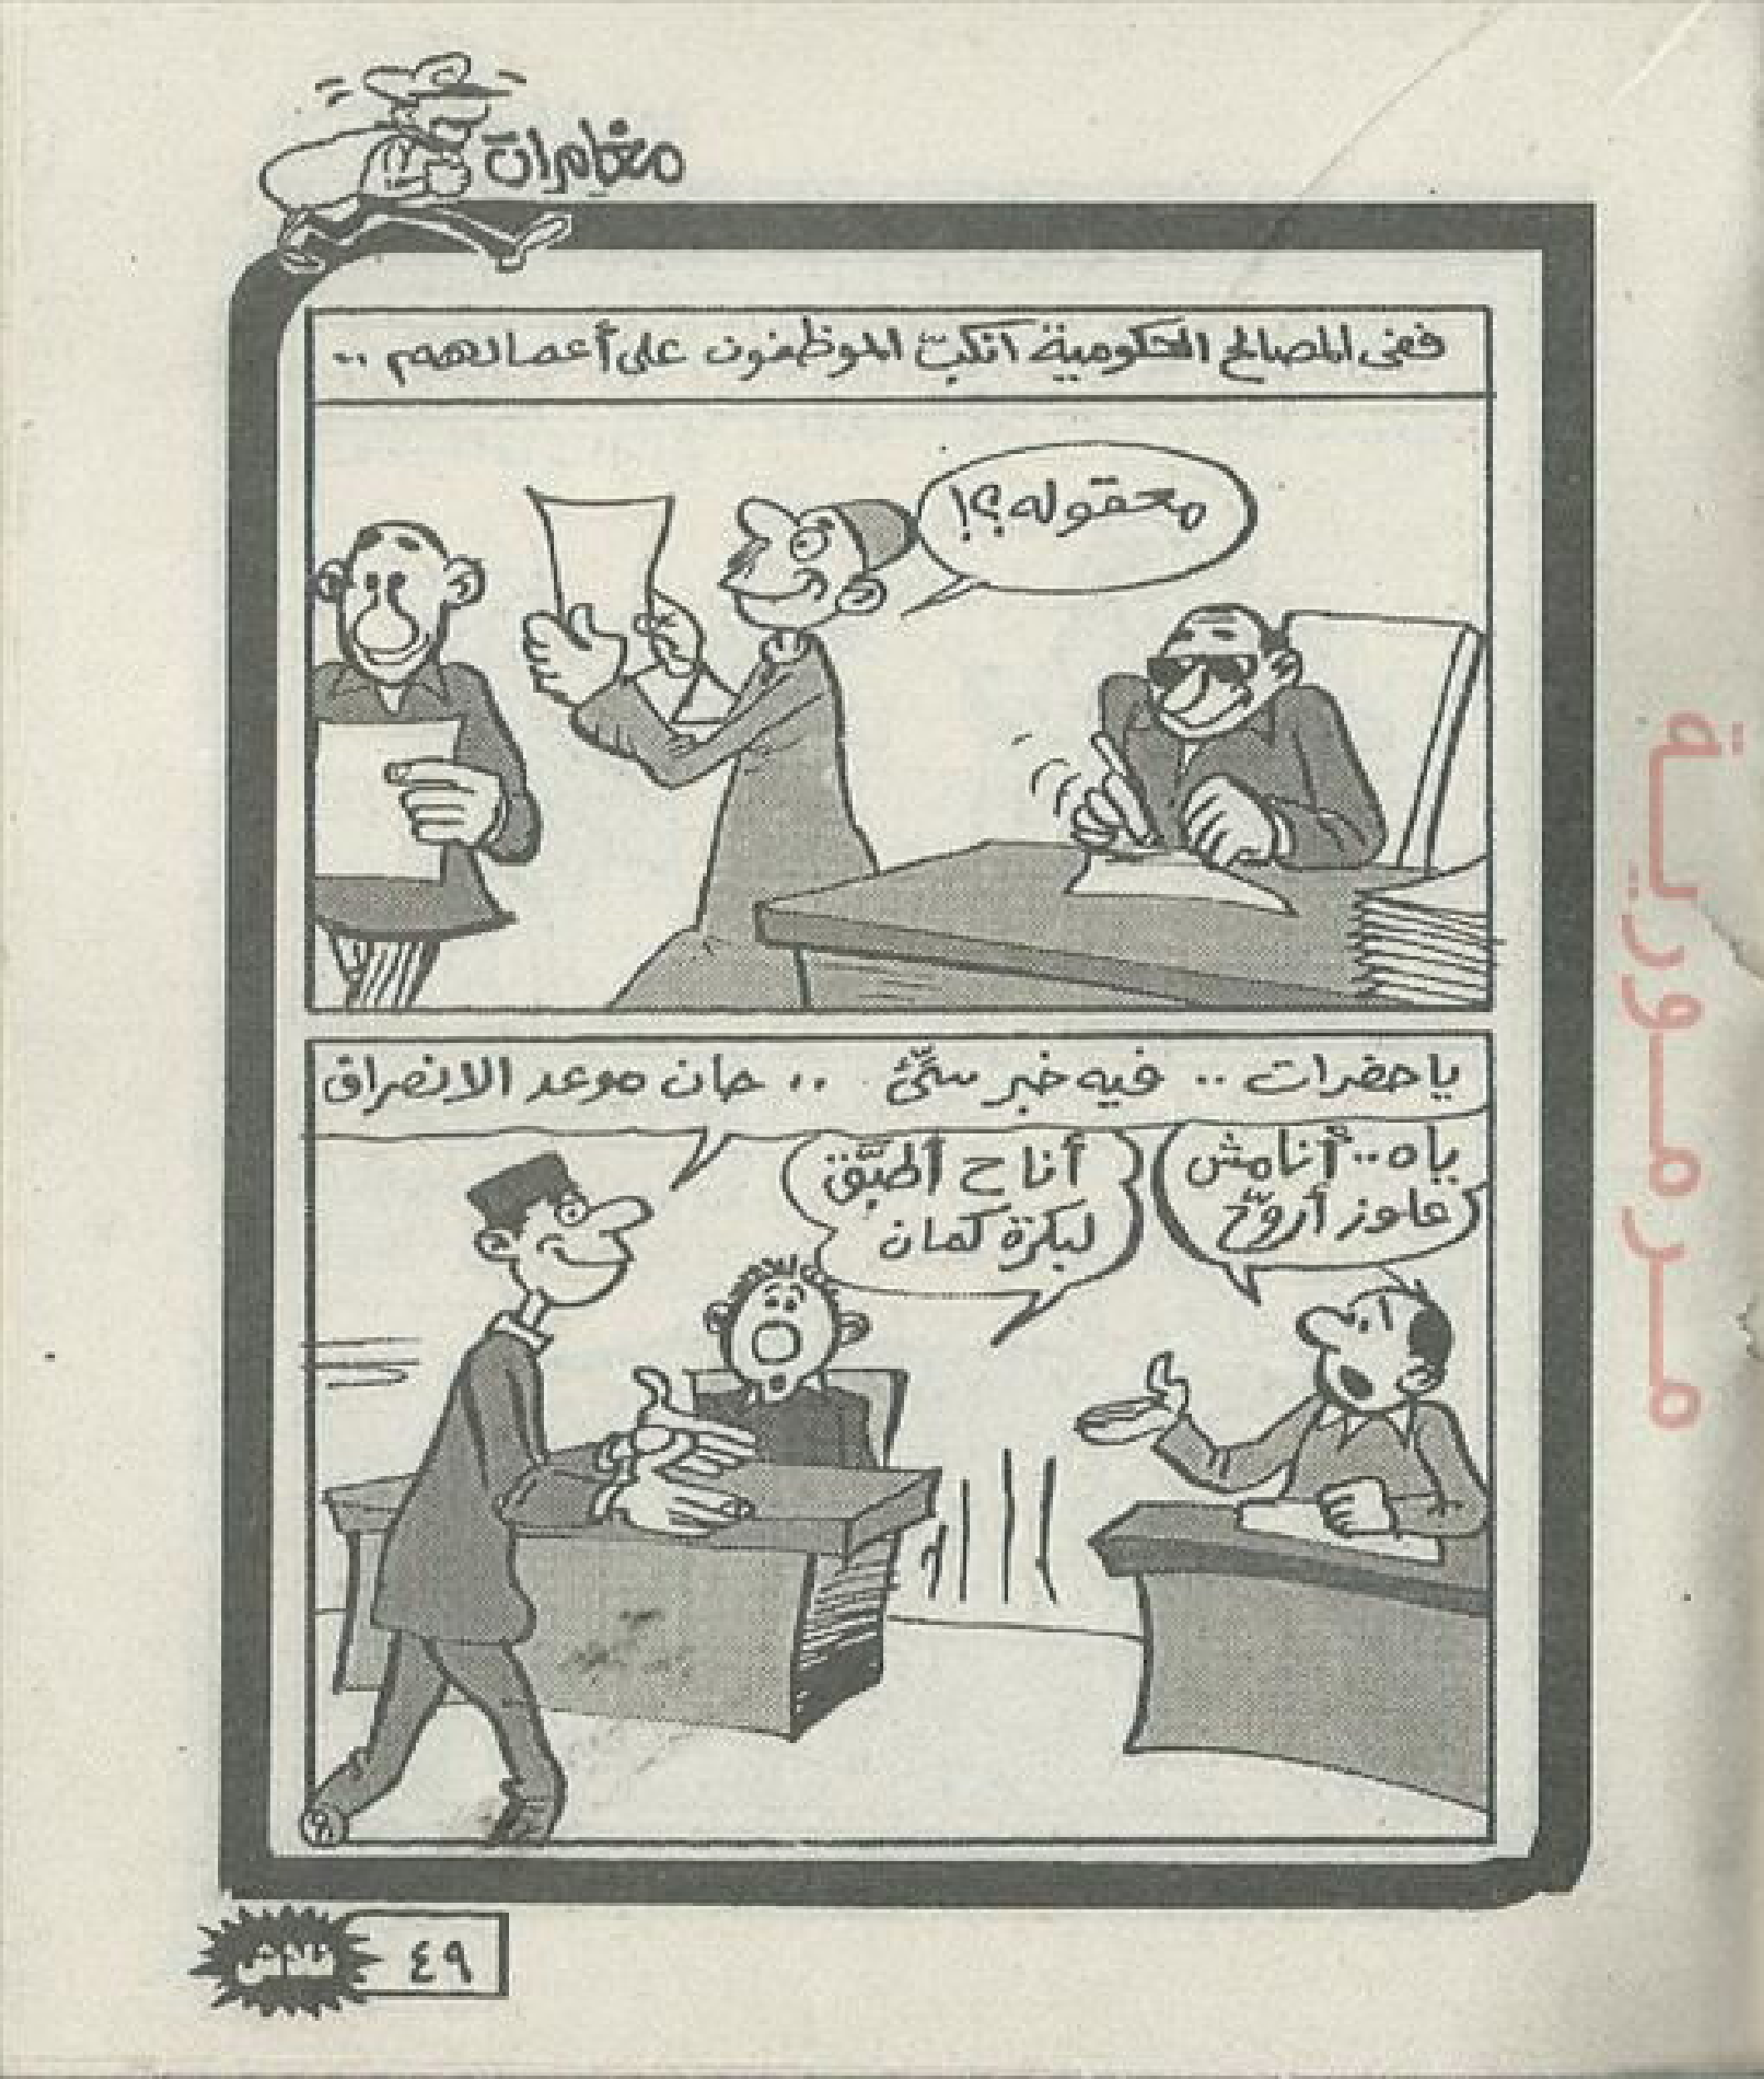 مغامرات
ففى المصالح الحكومية انكبّ الموظفون على أعمالهم ..
معقوله؟!
يا حضرات .. فيه خبر سئّ .. حان موعد الانصراف
ياه .. أنا مش
عاوز أروّح
أنا ح أطبّق
لبكرة كمان
٤٩
مرمورية